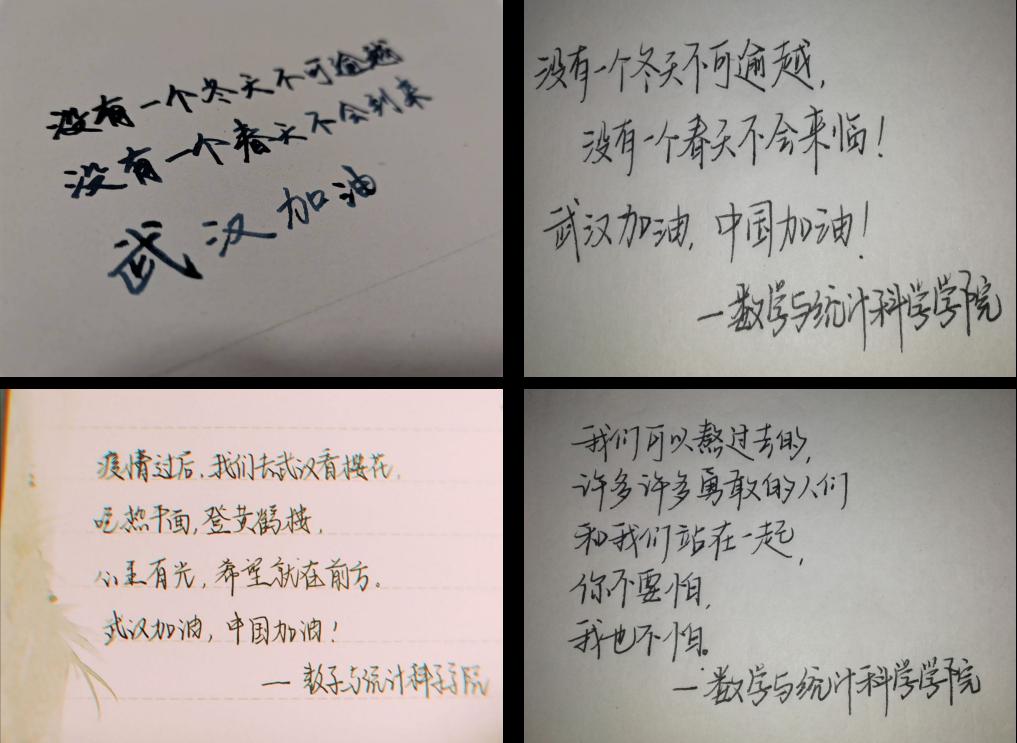 没有一个冬天不可逾越
没有一个春天不会到来
武汉加油
没有一个冬天不可逾越,
没有一个春天不会来临!
武汉加油,中国加油!
—数学与统计科学学院
疫情过后,我们去武汉看樱花,
吃热干面,登黄鹤楼,
心里有光,希望就在前方。
武汉加油,中国加油!
—数学与统计科学学院
我们可以熬过去的,
许多许多勇敢的人们
和我们站在一起,
你不要怕,
我也不怕。
—数学与统计科学学院